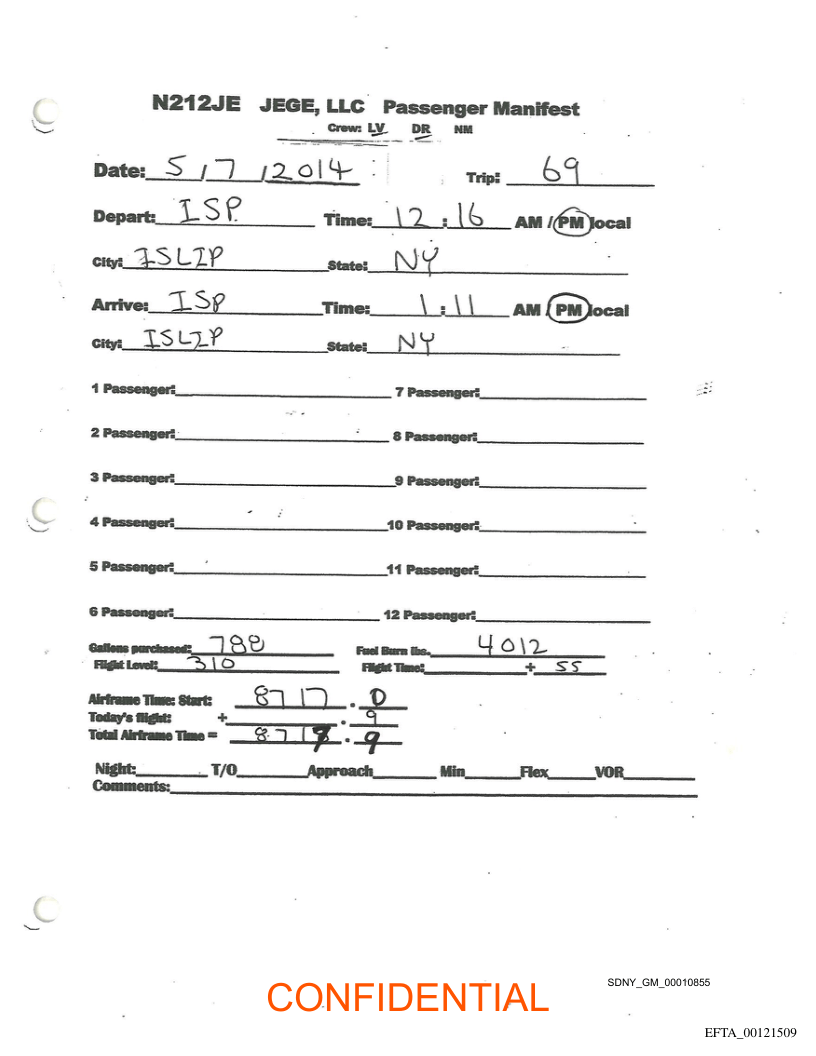 N212JE JEGE, LLC Passenger Manifest
Crew: LV DR NM
Date: 5 / 7 / 2014 Trip: 69
Depart: ISP Time: 12:16 AM / PM local
City: ISLIP State: NY
Arrive: ISP Time: 1:11 AM / PM local
City: ISLIP State: NY
1 Passenger: 7 Passenger:
2 Passenger: 8 Passenger:
3 Passenger: 9 Passenger:
4 Passenger: 10 Passenger:
5 Passenger: 11 Passenger:
6 Passenger: 12 Passenger:
Gallons purchased: 788 Fuel Burn lbs. 4012
Flight Level: 310 Flight Time: + 55
Airframe Time: Start: 8717 . 0
Today's flight: + . 9
Total Airframe Time = 8717 . 9
Night: T/O Approach Min Flex VOR
Comments:
SDNY_GM_00010855
CONFIDENTIAL
EFTA_00121509